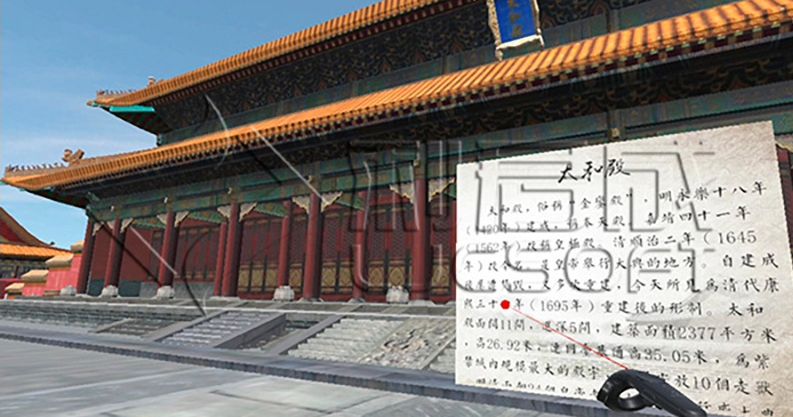 太和殿
太和殿
太和殿，俗稱“金鑾殿”，明永樂十八年
（1420年）建成，稱奉天殿。嘉靖四十一年
（1562年）改稱皇極殿。清順治二年（1645
年）改今名。是皇帝舉行大典的地方。自建成
後屢遭焚毀，又多次重建，今天所見為清代康
熙三十 年（1695年）重建後的形制。太和
殿面闊11間，進深5間，建築面積2377平方米
，高26.92米，連同臺基通高35.05米，為紫
禁城內規模最大的殿宇 放10個走獸